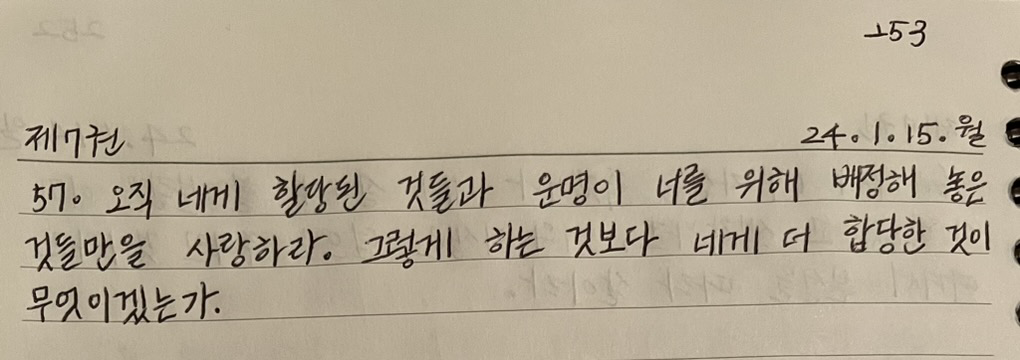 253
제7권 24.1.15.월
57. 오직 네게 할당된 것들과 운명이 너를 위해 배정해 놓은
것들만을 사랑하라. 그렇게 하는 것보다 네게 더 합당한 것이
무엇이겠는가.